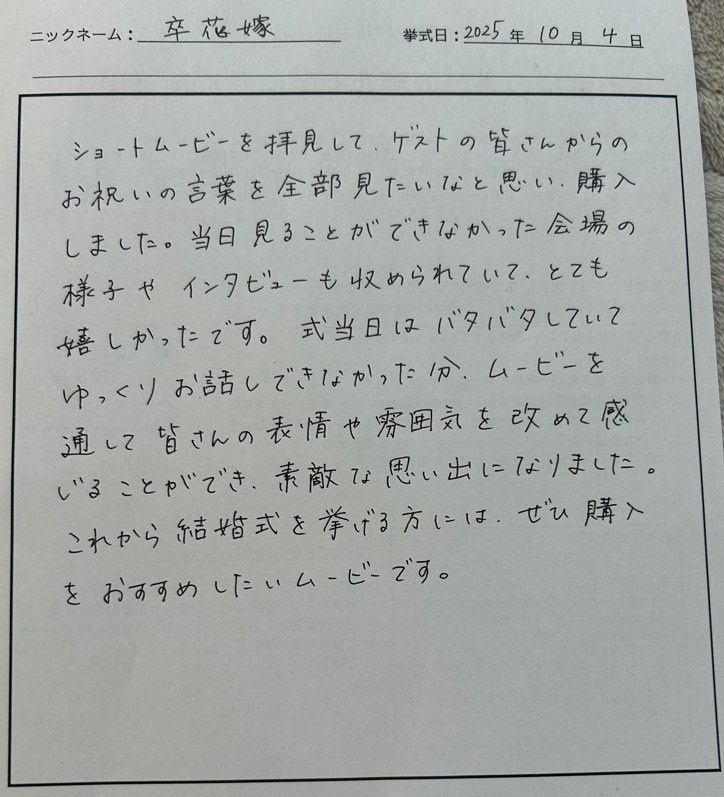 ニックネーム：卒花嫁 挙式日：2025年10月4日
ショートムービーを拝見して、ゲストの皆さんからの
お祝いの言葉を全部見たいなと思い、購入
しました。当日見ることができなかった会場の
様子やインタビューも収められていて、とても
嬉しかったです。式当日はバタバタしていて
ゆっくりお話しできなかった分、ムービーを
通して皆さんの表情や雰囲気を改めて感
じることができ、素敵な思い出になりました。
これから結婚式を挙げる方には、ぜひ購入
をおすすめしたいムービーです。